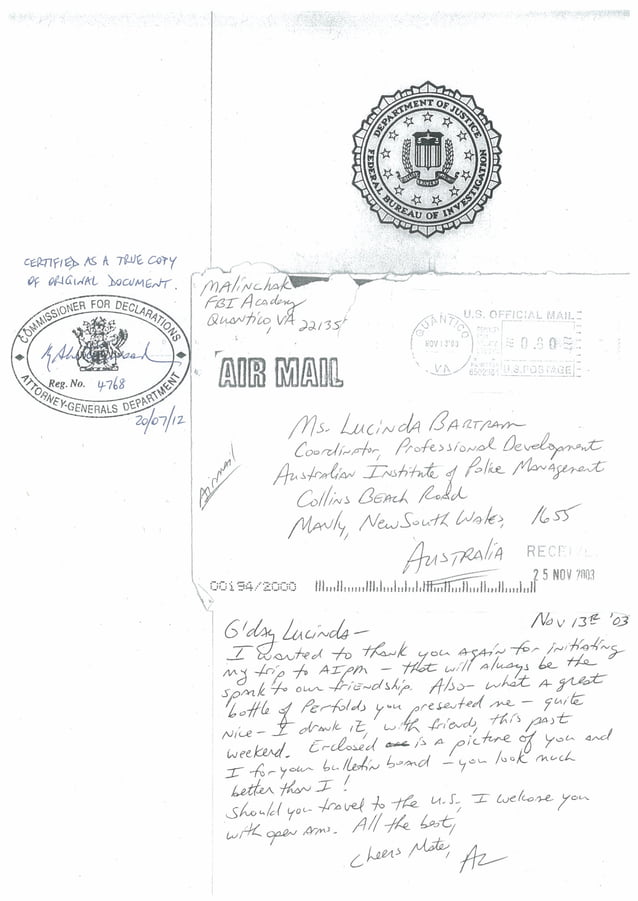 DEPARTMENT OF JUSTICE
FEDERAL BUREAU OF INVESTIGATION
CERTIFIED AS A TRUE COPY
OF ORIGINAL DOCUMENT.
COMMISSIONER FOR DECLARATIONS
Reg. No. 4768
ATTORNEY-GENERALS DEPARTMENT
20/07/12
Malinchak
FBI Academy
Quantico, VA 22135
QUANTICO
VA
U.S. OFFICIAL MAIL
U.S. POSTAGE
AIR MAIL
Airmail
Ms. Lucinda Bartram
Coordinator, Professional Development
Australian Institute of Police Management
Collins Beach Road
Manly, New South Wales, 1655
Australia
25 NOV 2003
00194/2000
Nov 13th '03
G'day Lucinda—
I wanted to thank you again for initiating
my trip to AIPM — that will always be the
spark to our friendship. Also — what a great
bottle of Penfolds you presented me — quite
nice — I drank it, with friends, this past
weekend. Enclosed is a picture of you and
I for your bulletin board — you look much
better than I!
Should you travel to the U.S., I welcome you
with open arms. All the best,
Cheers Mate,